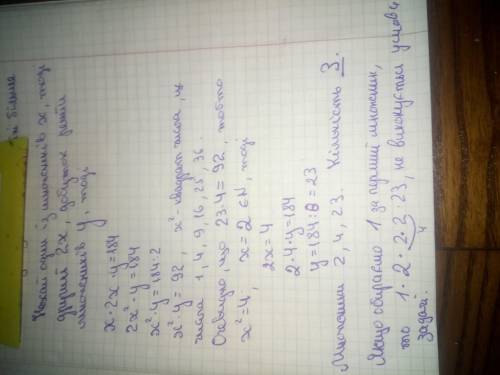 Нехай один з множників x, тоді
другий 2x, добуток решти
множників y, тоді
x·2x·y=184
2x²·y=184
x²·y=184:2
x²·y=92, x²-квадрат числа, це
числа 1, 4, 9, 16, 25, 36.
Очевидно, що 23·4=92. тобто
x²=4, x=2 ∈ N, тоді
2x=4
2·4·y=184
y=184:8=23
Множники 2, 4, 23. Кількість 3.
Якщо обираємо 1 за перший множник,
то 1·2·2·2·23, не виконується умова
4
задачі.